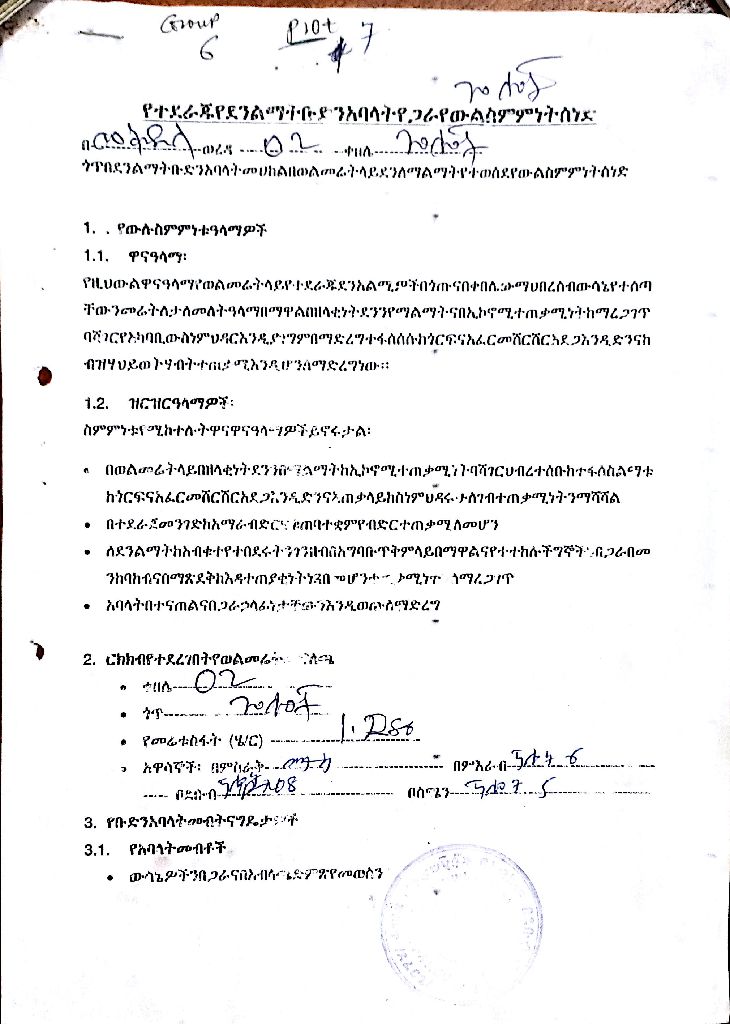 Group Plot
6 # 7
የተደራጁየደንልማትቡድንአባላትየጋራየውልስምምነትሰነድ
በ ወረዳ 02 ቀበሌ
ጎጥበደንልማትቡድንአባላትመሀከልበወልመሬትላይደንለማልማትየተወሰደየውልስምምነትሰነድ
1. የውሉስምምነቱዓላማዎች
1.1. ዋናዓላማ፡
የዚህውልዋናዓላማየወልመሬትላይየተደራጁደንአልሚዎችበጎጡናበቀበሌውማህበረሰብውሳኔየተሰጣ
ቸውንመሬትለታለመለትዓላማበማዋልበዘላቂነትደንንየማልማትናበኢኮኖሚተጠቃሚነትከማረጋገጥ
ባሻገርየአካባቢውስነምህዳርእንዲያገግምበማድረግተፋሰሱከጎርፍናአፈርመሸርሸርአደጋእንዲድንናከ
ብዝሃህይወትሃብትተጠቃሚእንዲሆንለማድረግነው።
1.2. ዝርዝርዓላማዎች፡
ስምምነቱየሚከተሉትዋናዋናዓላማዎችይኖሩታል፡
• በወልመሬትላይበዘላቂነትደንንበማልማትከኢኮኖሚተጠቃሚነትባሻገርህብረተሰቡከተፋሰስልማቱ
ከጎርፍናአፈርመሸርሸርአደጋእንዲድንናአጠቃላይከስነምህዳሩታለገብተጠቃሚነትንማሻሻል
• በተደራጀመንገድከአማራብድርናቁጠባተቋምየብድርተጠቃሚለመሆን
• ለደንልማትከአብቁተየተበደሩትንገንዘብበአግባቡጥቅምላይበማዋልናየተተከሉችግኞትንበጋራበመ
ንከባከብናበማጽደቅከእዳተጠያቂነትነጻበመሆንተጠቃሚነትን ለማረጋገጥ
• አባላትበተናጠልናበጋራኃላፊነታቸውንእንዲወጡለማድረግ
2. ርክክብየተደረገበትየወልመሬት
• ቀበሌ 02
• ጎጥ
• የመሬቱስፋት (ሄ/ር) 1.250
• አዋሳኞች፡ በምስራቅ በምእራብ 6
በደቡብ በሰሜን 5
3. የቡድንአባላትመብትናግዴታዎች
3.1. የአባላትመብቶች
• ውሳኔዎችንበጋራናበአብላጫድምጽየመወሰን